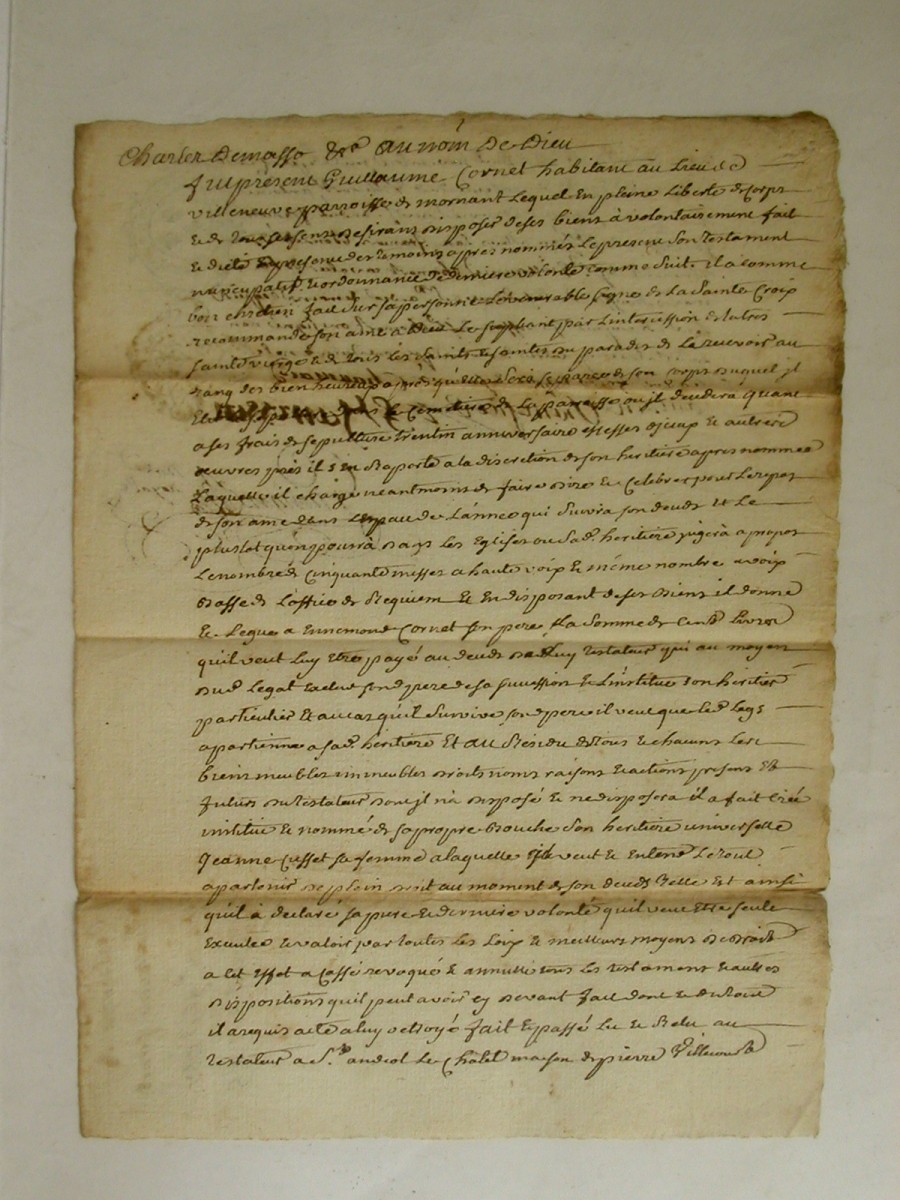 Charles Demasso &ca au nom de Dieu
fut présent Guillaume Cornet habitant au lieu de
villeneuve parroisse de mornant lequel en pleine liberté de corps
& de tous ses sens desirans disposer de ses biens à volontairement fait
& dicté en presence des temoins apres nommés le present son testament
nuncupatif & ordonnance de derniere volonté comme suit. il a comme
bon chretien fait sur sa personne le venerable signe de la Sainte Croix
recommandé son ame à Dieu le supliant par l'intercession de la tres
sainte vierge & de tous les saints & saintes du paradis de la recevoir au
rang des bien heureux apres qu'elle sera separée de son corps duquel il
le cemetiere de la paroisse ou il decedera quant
a ses frais de sepulture trentin anniversaire messes & autres
oeuvres pies il s'en raporte a la discretion de son heritiere apres nommée
laquelle il charge neantmoins de faire dire & celebrer pour le repos
de son ame dans l'espace de l'année qui suivra son deceds et le
plustot qu'on pourra dans les Eglises ou sad. heritiere jugera a propos
le nombre de cinquante messes a haute voix & même nombre a voix
basse de l'office de Requiem & en disposant de ses biens il donne
& legue a Ennemond Cornet son pere la somme de cent livres
qu'il veut luy etre payé au deceds de luy testateur qui au moyen
dud. legat exclud sond. pere de sa succession & l'institue son heritier
particulier et au cas qu'il survive sond. pere il veut que led. legs
apartienne a sad. heritiere Et au Residu de tous & chacuns ses
biens meubles immeubles droits noms raisons & actions presens et
futurs du testateur dont il n'a disposé & ne disposera il a fait créé
institué & nommé de sa propre bouche son heritiere universelle
Jeanne Cusset sa femme a laquelle il veut & entend le tout
apartenir de plein droit au moment de son deceds telle est ainsi
qu'il à declaré sa pure & derniere volonté qu'il veut etre seule
executée & valoir par toutes les loix & meilleurs moyens de droit
a cet effet a cassé revoqué & annullé tous les testament & autres
dispositions qu'il peut avoir cy devant fait dont &
il a requis acte a luy octroyé fait & passé lu & relu au
testateur a St. andeol le Chatel maison de pierre